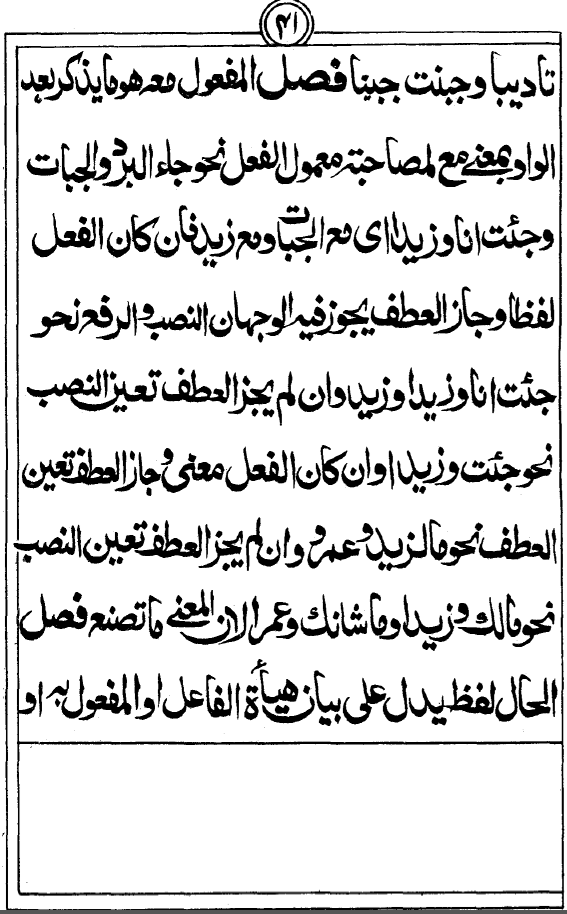 ۴۱
تاديبا وجبنت جبينا فصل المفعول معه هو ما يذكر بعد
الواو بمعنے مع لمصاحبته معمول الفعل نحو جاء البرد والجبات
وجئت انا وزيدا اى مع الجبات ومع زيد فان كان الفعل
لفظا وجاز العطف يجوز فيه الوجهان النصب والرفع نحو
جئت انا وزيدا وزيد وان لم يجز العطف تعين النصب
نحو جئت وزيدا وان كان الفعل معنى وجاز العطف تعين
العطف نحو ما لزيد وعمرو وان لم يجز العطف تعين النصب
نحو مالك وزيدا وما شانك وعمرا لان المعنے ما تصنع فصل
الحال لفظ يدل على بيان هيأة الفاعل او المفعول به او